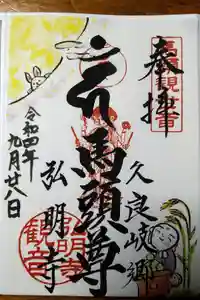 奉拝
久良岐郷
馬頭尊
弘明寺
令和四年
九月廿八日
観音